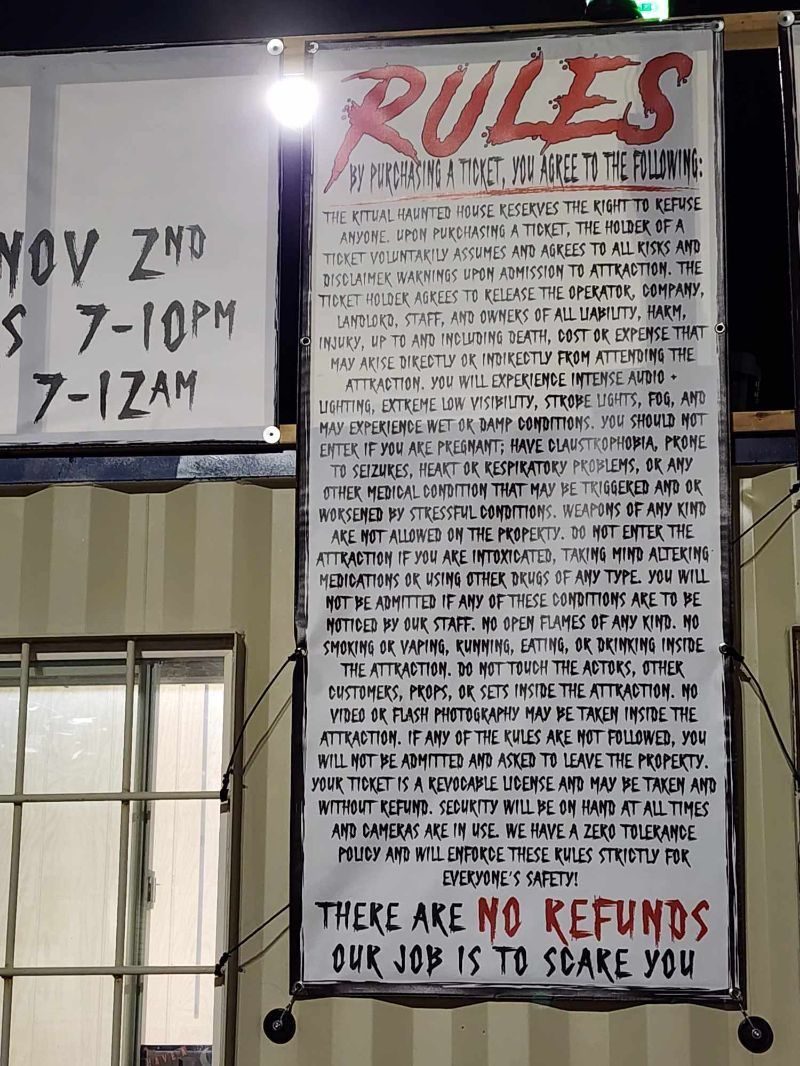 NOV 2ND
S 7-10PM
7-12AM
RULES
BY PURCHASING A TICKET, YOU AGREE TO THE FOLLOWING:
THE RITUAL HAUNTED HOUSE RESERVES THE RIGHT TO REFUSE
ANYONE. UPON PURCHASING A TICKET, THE HOLDER OF A
TICKET VOLUNTARILY ASSUMES AND AGREES TO ALL RISKS AND
DISCLAIMER WARNINGS UPON ADMISSION TO ATTRACTION. THE
TICKET HOLDER AGREES TO RELEASE THE OPERATOR, COMPANY,
LANDLORD, STAFF, AND OWNERS OF ALL LIABILITY, HARM,
INJURY, UP TO AND INCLUDING DEATH, COST OR EXPENSE THAT
MAY ARISE DIRECTLY OR INDIRECTLY FROM ATTENDING THE
ATTRACTION. YOU WILL EXPERIENCE INTENSE AUDIO +
LIGHTING, EXTREME LOW VISIBILITY, STROBE LIGHTS, FOG, AND
MAY EXPERIENCE WET OR DAMP CONDITIONS. YOU SHOULD NOT
ENTER IF YOU ARE PREGNANT; HAVE CLAUSTROPHOBIA, PRONE
TO SEIZURES, HEART OR RESPIRATORY PROBLEMS, OR ANY
OTHER MEDICAL CONDITION THAT MAY BE TRIGGERED AND OR
WORSENED BY STRESSFUL CONDITIONS. WEAPONS OF ANY KIND
ARE NOT ALLOWED ON THE PROPERTY. DO NOT ENTER THE
ATTRACTION IF YOU ARE INTOXICATED, TAKING MIND ALTERING
MEDICATIONS OR USING OTHER DRUGS OF ANY TYPE. YOU WILL
NOT BE ADMITTED IF ANY OF THESE CONDITIONS ARE TO BE
NOTICED BY OUR STAFF. NO OPEN FLAMES OF ANY KIND. NO
SMOKING OR VAPING, RUNNING, EATING, OR DRINKING INSIDE
THE ATTRACTION. DO NOT TOUCH THE ACTORS, OTHER
CUSTOMERS, PROPS, OR SETS INSIDE THE ATTRACTION. NO
VIDEO OR FLASH PHOTOGRAPHY MAY BE TAKEN INSIDE THE
ATTRACTION. IF ANY OF THE RULES ARE NOT FOLLOWED, YOU
WILL NOT BE ADMITTED AND ASKED TO LEAVE THE PROPERTY.
YOUR TICKET IS A REVOCABLE LICENSE AND MAY BE TAKEN AND
WITHOUT REFUND. SECURITY WILL BE ON HAND AT ALL TIMES
AND CAMERAS ARE IN USE. WE HAVE A ZERO TOLERANCE
POLICY AND WILL ENFORCE THESE RULES STRICTLY FOR
EVERYONE'S SAFETY!
THERE ARE NO REFUNDS
OUR JOB IS TO SCARE YOU